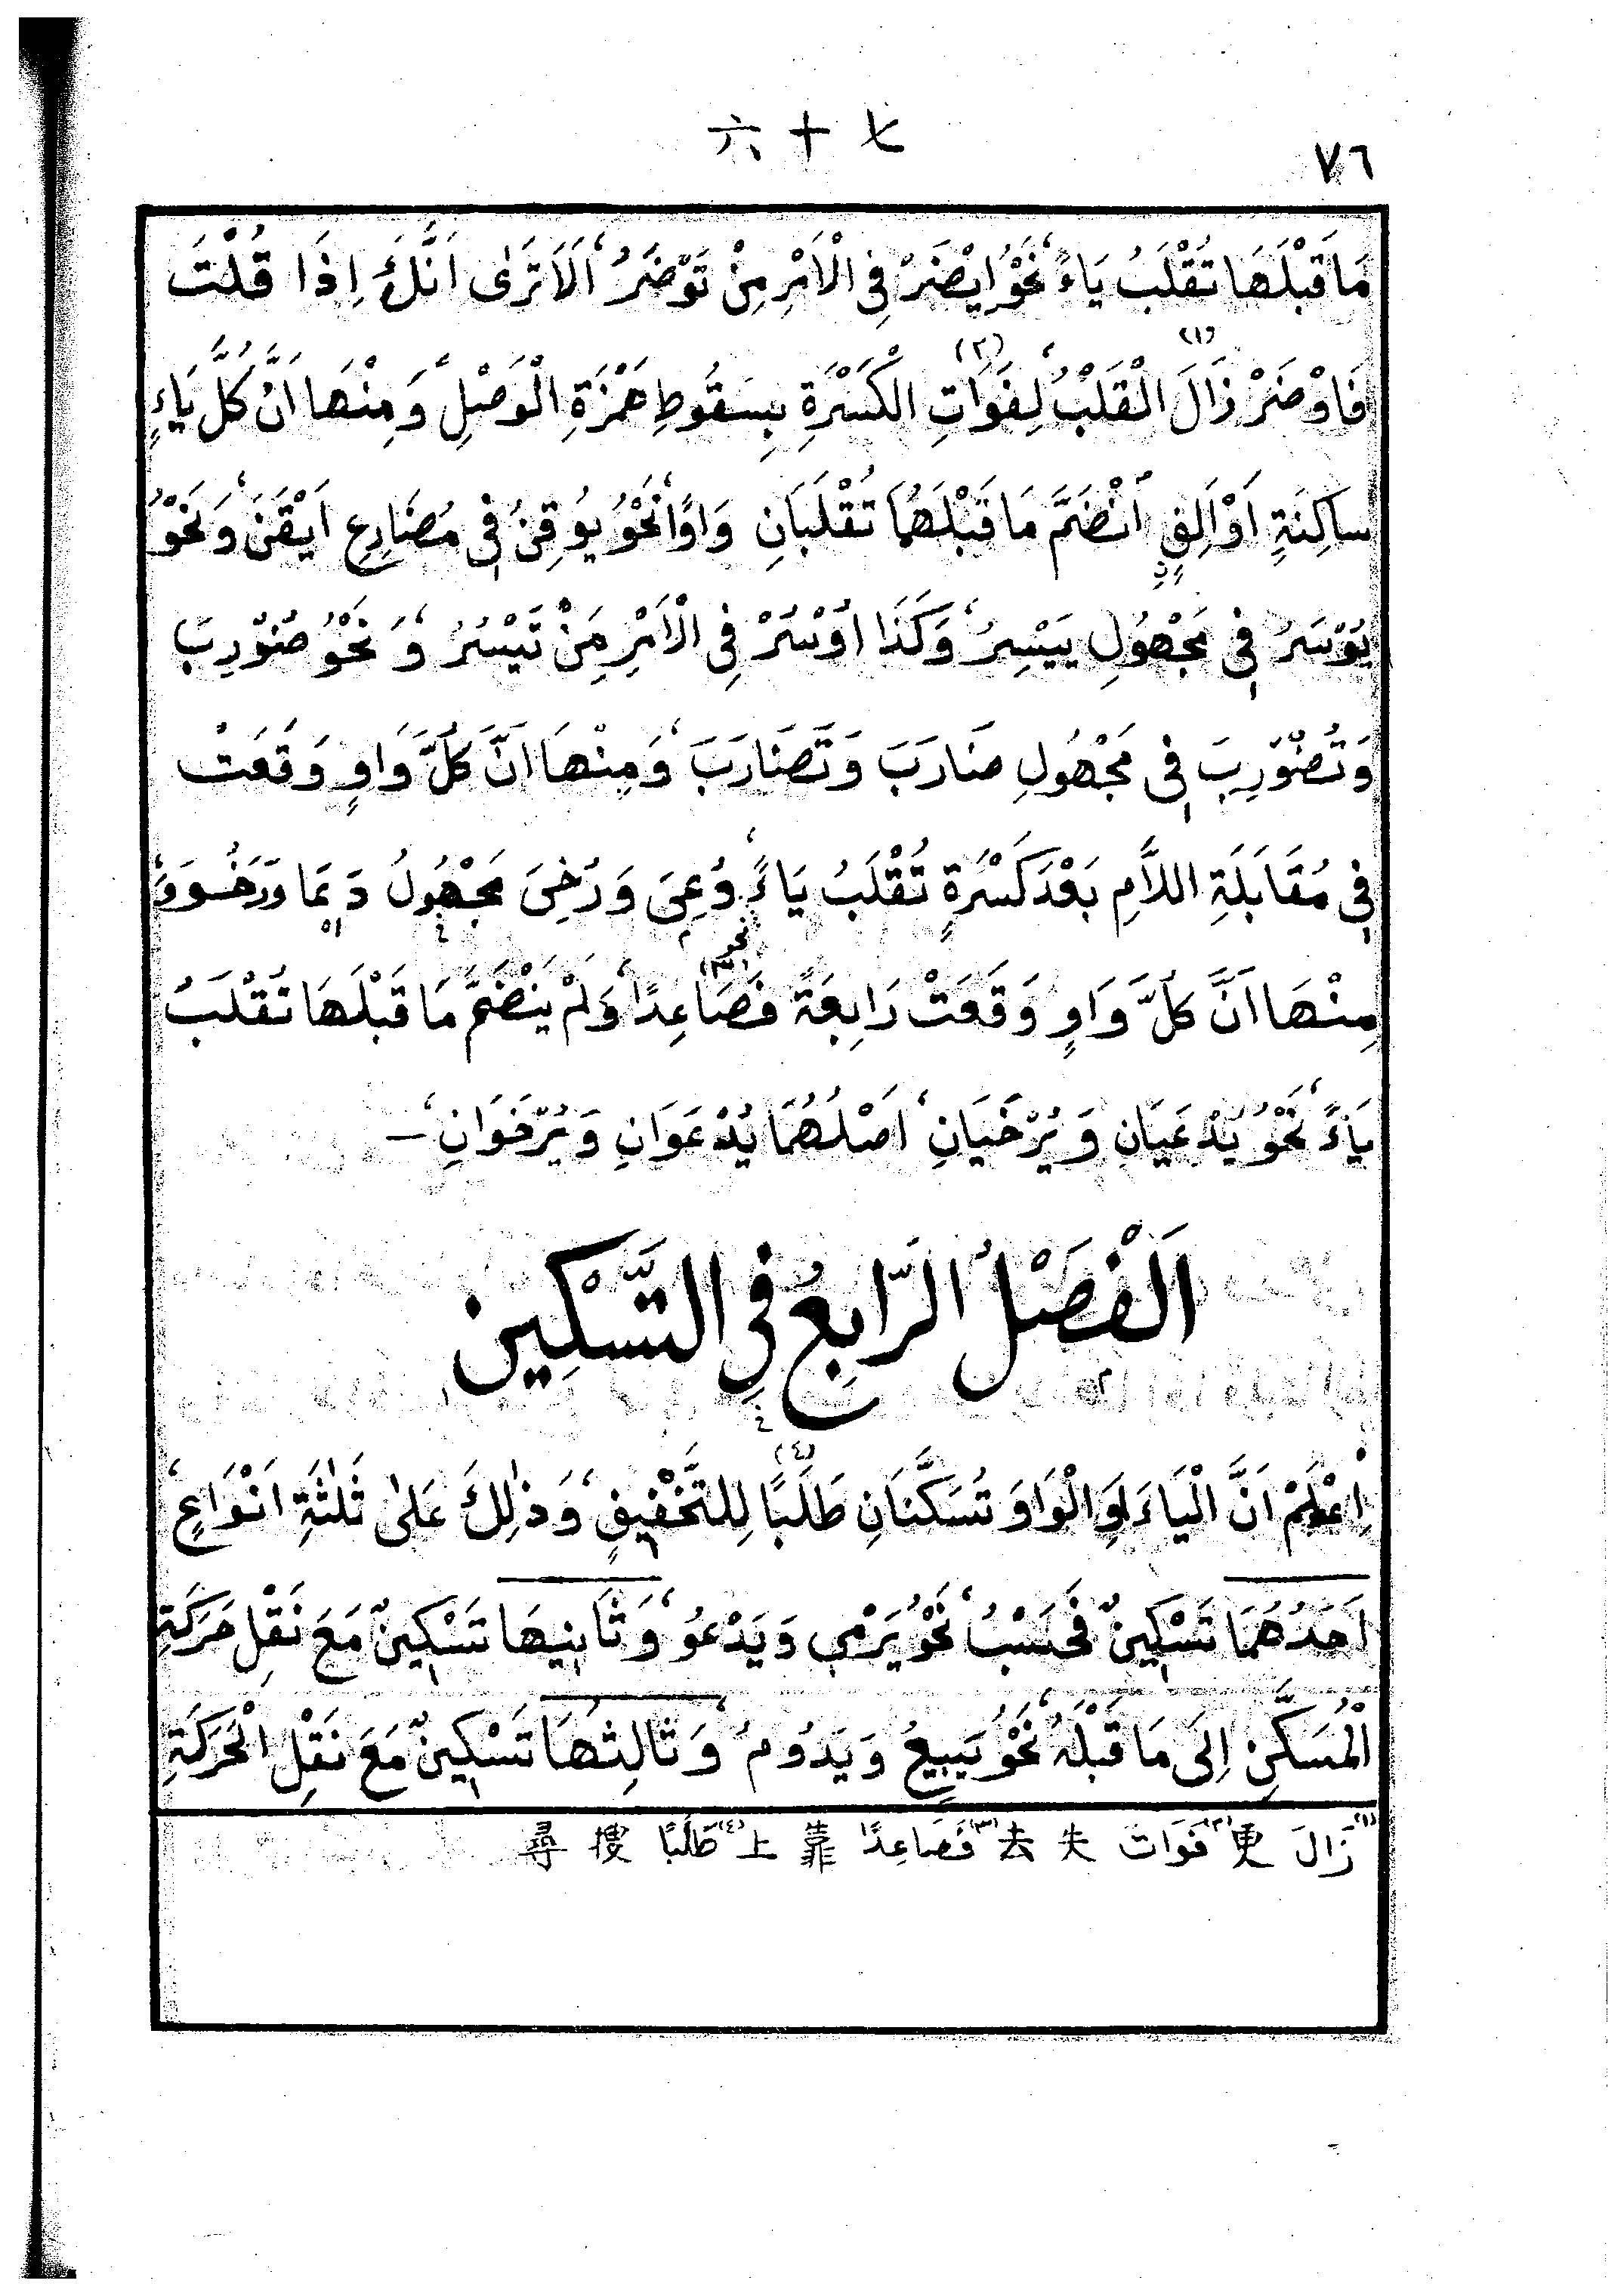 六十七
٧٦
مَا قَبْلَهَا تُقْلَبُ يَاءً، نَحْوُ اِيْضَرْ فِي الْاَمْرِ مِنْ تَوْضَرُ، اَلَا تَرٰى اَنَّكَ اِذَا قُلْتَ
فَاوْضَرْ زَالَ (١) الْقَلْبُ، لِفَوَاتِ (٢) الْكَسْرَةِ بِسُقُوطِ هَمْزَةِ الْوَصْلِ، وَمِنْهَا اَنَّ كُلَّ يَاءٍ
سَاكِنَةٍ اَوْ اَلِفٍ اُنْضَمَّ مَا قَبْلَهُمَا تُقْلَبَانِ وَاوًا، نَحْوُ يُوقِنُ فِي مُضَارِعِ اَيْقَنَ، وَنَحْوُ
يُوْسَرُ فِي مَجْهُولِ يَيْسِرُ، وَكَذَا اُوْسُرْ فِي الْاَمْرِ مِنْ تَيْسُرُ، وَنَحْوُ ضُوْرِبَ
وَتُضُوْرِبَ فِي مَجْهُولِ ضَارَبَ وَتَضَارَبَ، وَمِنْهَا اَنَّ كُلَّ وَاوٍ وَقَعَتْ
فِي مُقَابَلَةِ اللَّامِ بَعْدَ كَسْرَةٍ تُقْلَبُ يَاءً، نحو دُعِيَ وَرُخِيَ مَجْهُولُ دَعَا وَرَخُوَ، وَ
مِنْهَا اَنَّ كُلَّ وَاوٍ وَقَعَتْ رَابِعَةً فَصَاعِدًا (٣)، وَلَمْ يَنْضَمَّ مَا قَبْلَهَا تُقْلَبُ
يَاءً، نَحْوُ يُدْعَيَانِ وَيُرْخَيَانِ، اَصْلُهُمَا يُدْعَوَانِ وَيُرْخَوَانِ، —
اَلْفَصْلُ الرَّابِعُ فِي التَّسْكِينِ
اِعْلَمْ اَنَّ الْيَاءَ اَوِ الْوَاوَ تُسَكَّنَانِ طَلَبًا (٤) لِلتَّخْفِيفِ، وَذٰلِكَ عَلٰى ثَلٰثَةِ اَنْوَاعٍ،
اَحَدُهُمَا تَسْكِينٌ فَحَسْبُ، نَحْوُ يَرْمِي وَيَدْعُو، وَثَانِيهَا تَسْكِينٌ مَعَ نَقْلِ حَرَكَةِ
الْمُسَكَّنِ اِلَى مَا قَبْلَهُ، نَحْوُ يَبِيعُ وَيَدُومُ، وَثَالِثُهَا تَسْكِينٌ مَعَ نَقْلِ الْحَرَكَةِ
(١) زَالَ 更 (٢) فَوَاتَ 失 去 (٣) فَصَاعِدًا 靠 上 (٤) طَلَبًا 搜 尋